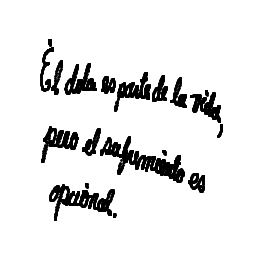 El dolor es parte de la vida,
pero el sufrimiento es
opcional.